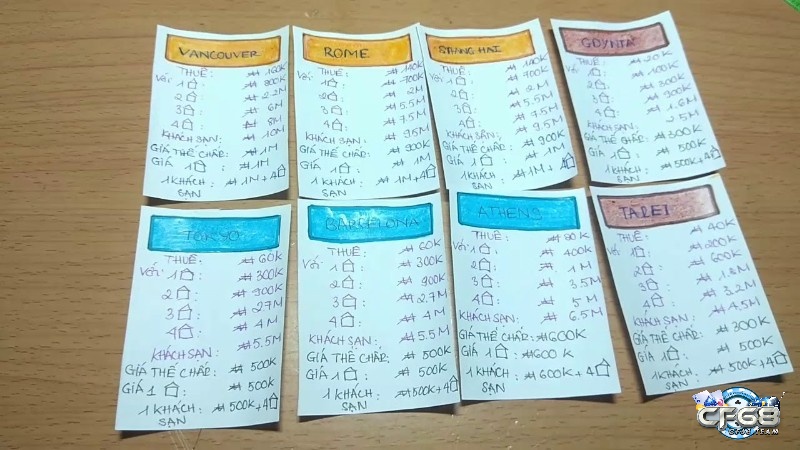 VANCOUVER
THUÊ: ₩ 160K
Với 1⌂: ₩ 800K
2⌂: ₩ 2.2M
3⌂: ₩ 6M
4⌂: ₩ 8M
KHÁCH SẠN: ₩ 10M
GIÁ THẾ CHẤP: ₩ 1M
GIÁ 1⌂: ₩ 1M
1 KHÁCH SẠN: ₩ 1M + 4⌂
ROME
THUÊ: ₩ 140K
Với: 1⌂: ₩ 700K
2⌂: ₩ 2M
3⌂: ₩ 5.5M
4⌂: ₩ 7.5M
KHÁCH SẠN: ₩ 9.5M
GIÁ THẾ CHẤP: ₩ 900K
GIÁ 1⌂: ₩ 1M
1 KHÁCH SẠN: ₩ 1M + 4⌂
THUÊ: ₩ 140K
Với: 1⌂: ₩ 700K
2⌂: ₩ 2M
3⌂: ₩ 5.5M
4⌂: ₩ 7.5M
KHÁCH SẠN: ₩ 9.5M
GIÁ THẾ CHẤP: ₩ 900K
GIÁ 1⌂: ₩ 1M
1 KHÁCH SẠN: ₩ 1M + 4⌂
GDYNIA
THUÊ: ₩ 20K
Với: 1⌂: ₩ 100K
2⌂: ₩ 300K
3⌂: ₩ 900K
4⌂: ₩ 1.6M
KHÁCH SẠN: 2.5M
GIÁ THẾ CHẤP: ₩ 300K
GIÁ 1⌂: ₩ 500K
1 KHÁCH SẠN: ₩ 500K + 4⌂
TOKYO
THUÊ: ₩ 60K
Với: 1⌂: ₩ 300K
2⌂: ₩ 900K
3⌂: ₩ 2.7M
4⌂: ₩ 4M
KHÁCH SẠN: ₩ 5.5M
GIÁ THẾ CHẤP: ₩ 500K
GIÁ 1⌂: ₩ 500K
1 KHÁCH SẠN: ₩ 500K + 4⌂
BARCELONA
THUÊ: ₩ 60K
Với: 1⌂: ₩ 300K
2⌂: ₩ 900K
3⌂: ₩ 2.7M
4⌂: ₩ 4M
KHÁCH SẠN: ₩ 5.5M
GIÁ THẾ CHẤP: ₩ 500K
GIÁ 1⌂: ₩ 500K
1 KHÁCH SẠN: ₩ 500K + 4⌂
ATHENS
THUÊ: ₩ 80K
Với: 1⌂: ₩ 400K
2⌂: ₩ 1M
3⌂: ₩ 3.5M
4⌂: ₩ 5M
KHÁCH SẠN: ₩ 6.5M
GIÁ THẾ CHẤP: ₩ 600K
GIÁ 1⌂: ₩ 600K
1 KHÁCH SẠN: ₩ 600K + 4⌂
TAIPEI
THUÊ: ₩ 40K
Với: 1⌂: ₩ 200K
2⌂: ₩ 600K
3⌂: ₩ 1.8M
4⌂: ₩ 3.2M
KHÁCH SẠN: ₩ 4.5M
GIÁ THẾ CHẤP: ₩ 300K
GIÁ 1⌂: ₩ 500K
1 KHÁCH SẠN: ₩ 500K + 4⌂
CF68